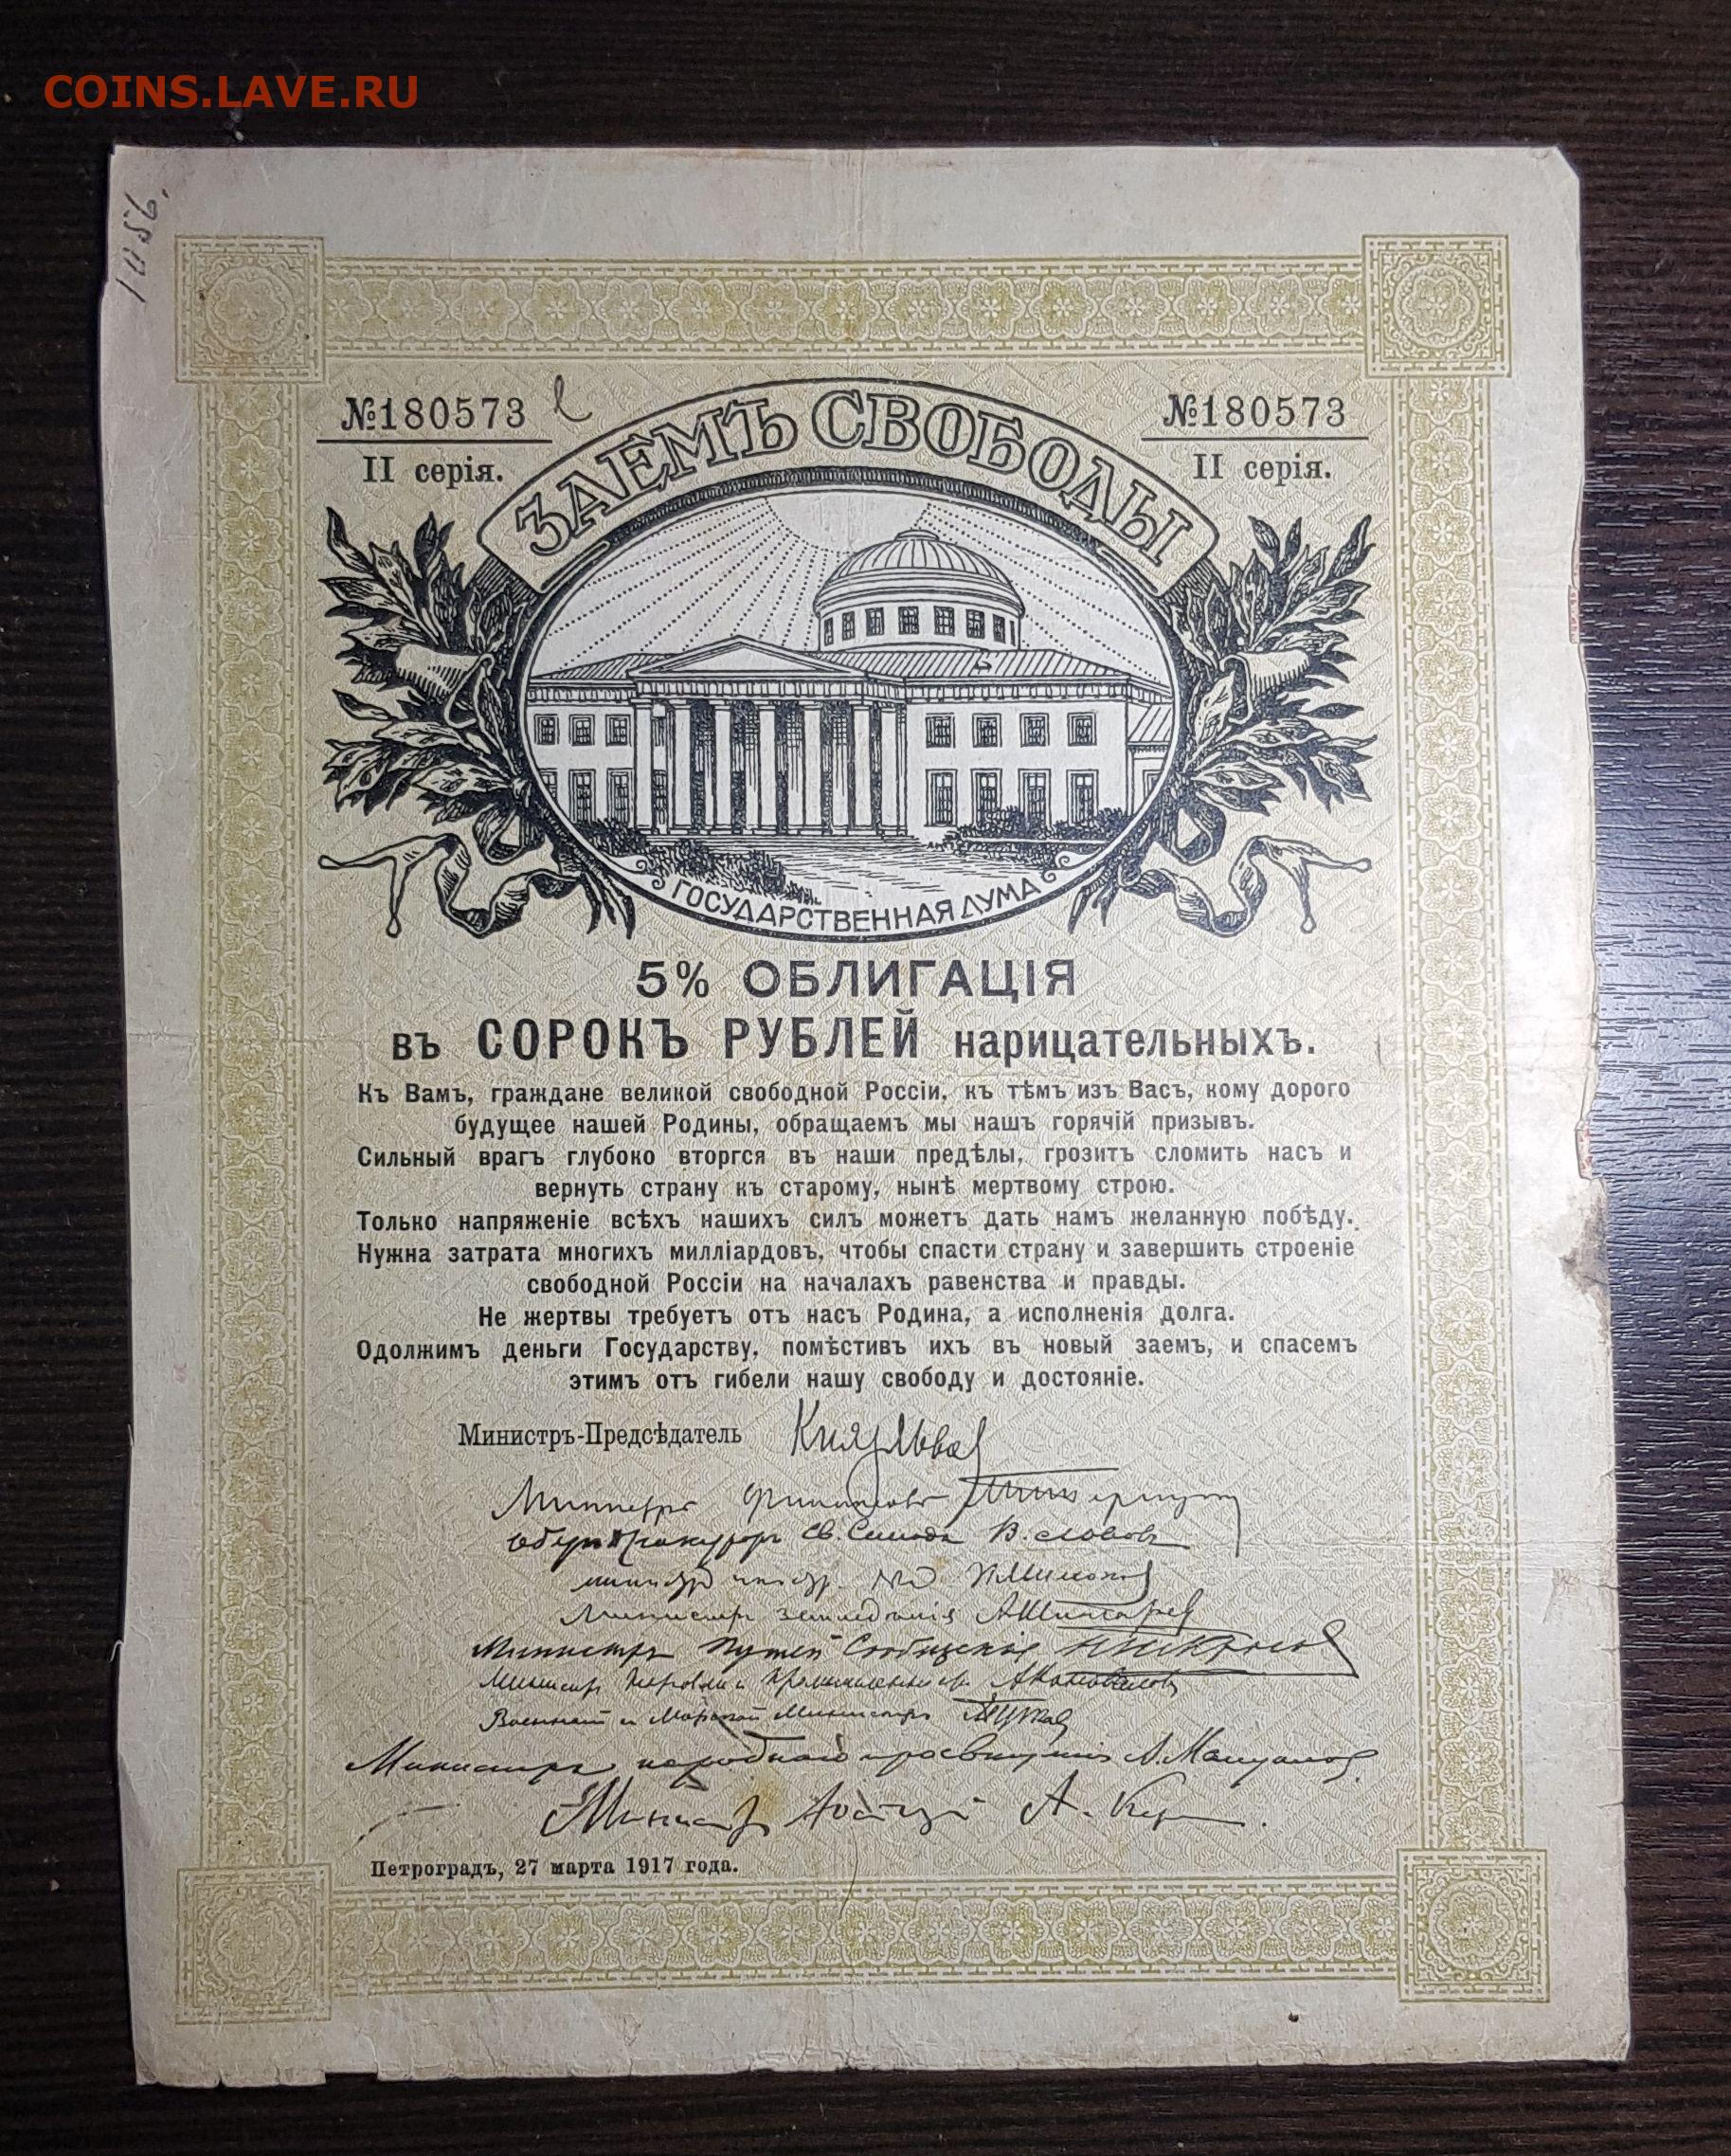 COINS.LAVE.RU
№180573
II серія.
№180573
II серія.
ЗАЕМЪ СВОБОДЫ
ГОСУДАРСТВЕННАЯ ДУМА
5% ОБЛИГАЦІЯ
въ СОРОКЪ РУБЛЕЙ нарицательныхъ.
Къ Вамъ, граждане великой свободной Россіи, къ тѣмъ изъ Васъ, кому дорого
будущее нашей Родины, обращаемъ мы нашъ горячій призывъ.
Сильный врагъ глубоко вторгся въ наши предѣлы, грозитъ сломить насъ и
вернуть страну къ старому, нынѣ мертвому строю.
Только напряженіе всѣхъ нашихъ силъ можетъ дать намъ желанную побѣду.
Нужна затрата многихъ милліардовъ, чтобы спасти страну и завершить строеніе
свободной Россіи на началахъ равенства и правды.
Не жертвы требуетъ отъ насъ Родина, а исполненія долга.
Одолжимъ деньги Государству, помѣстивъ ихъ въ новый заемъ, и спасемъ
этимъ отъ гибели нашу свободу и достояніе.
Министръ-Предсѣдатель Князь Львов
Министръ Финансовъ
Оберъ Прокуроръ Св. Синода В. Львовъ
Министръ земледѣлія А. Шингарев
Министръ Путей Сообщенія
Министръ Торговли и Промышленности А. Коноваловъ
Военный и Морской Министръ
Министръ народнаго просвѣщенія А. Мануилов
Министр А.
Петроградъ, 27 марта 1917 года.